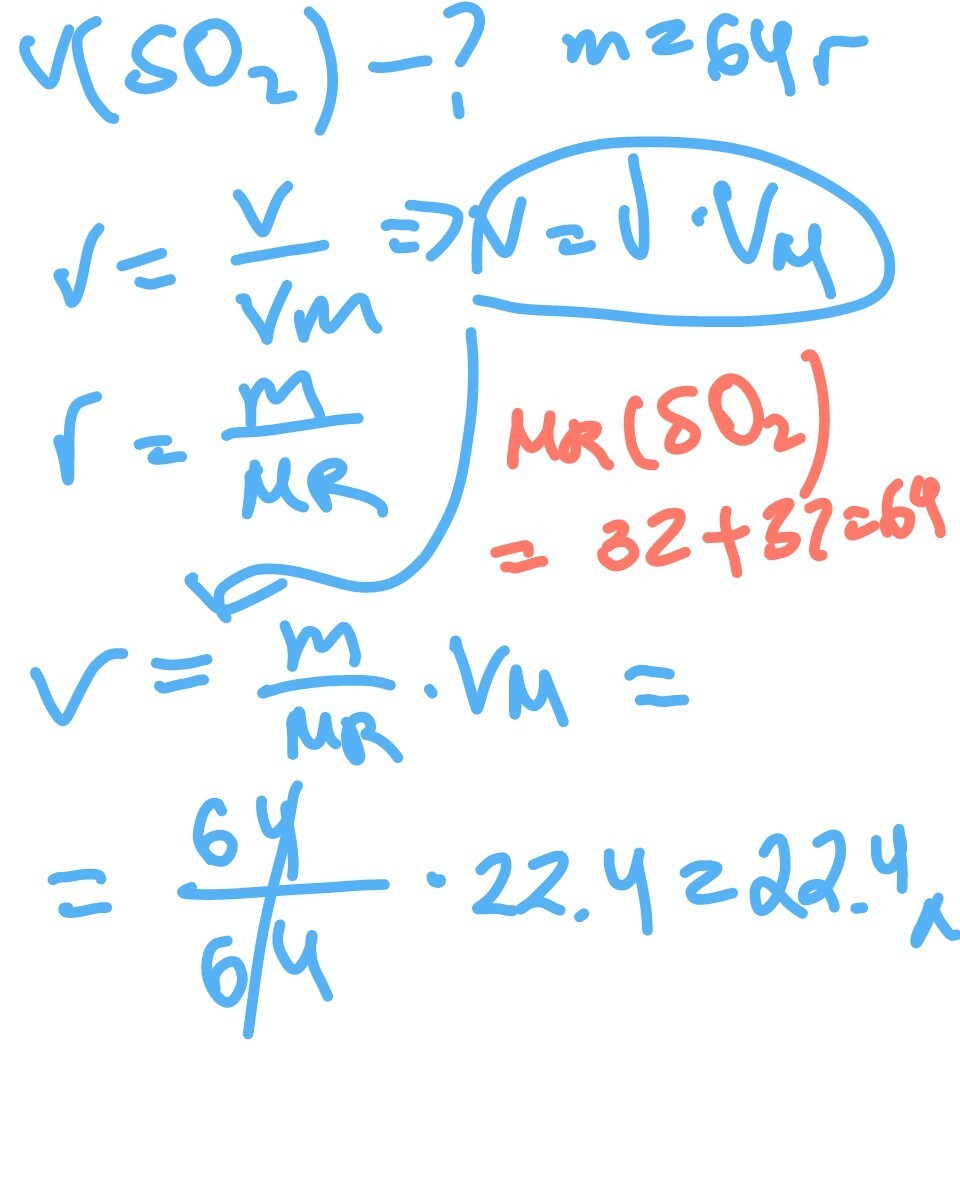 V(SO₂) - ? m = 64 г
ν = V/Vм => V = ν · Vм
ν = m/MR
MR(SO₂)
= 32 + 32 = 64
V = m/MR · Vм =
= 64/64 · 22.4 = 22.4 л